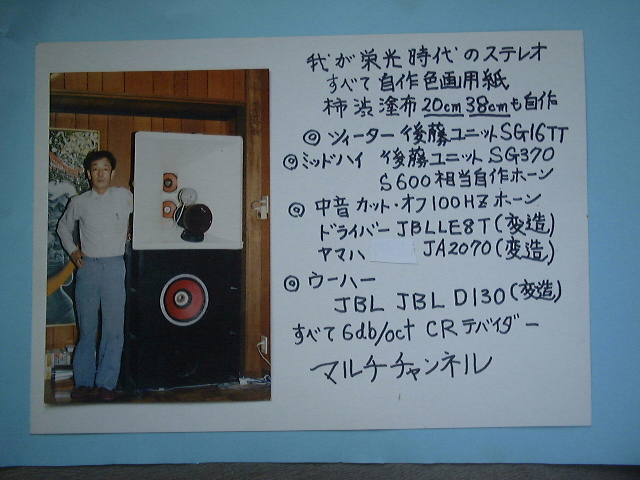 我が栄光時代のステレオ
すべて自作色画用紙
柿渋塗布20cm 38cmも自作
◎ ツィーター 後藤ユニットSG16TT
◎ミッドハイ 後藤ユニットSG370
S600相当自作ホーン
◎ 中音カット・オフ100HZホーン
ドライバーJBLLE8T(変造)
ヤマハ JA2070(変造)
◎ ウーハー
JBL JBL D130(変造)
すべて6db/oct CRデバイダー
マルチチャンネル